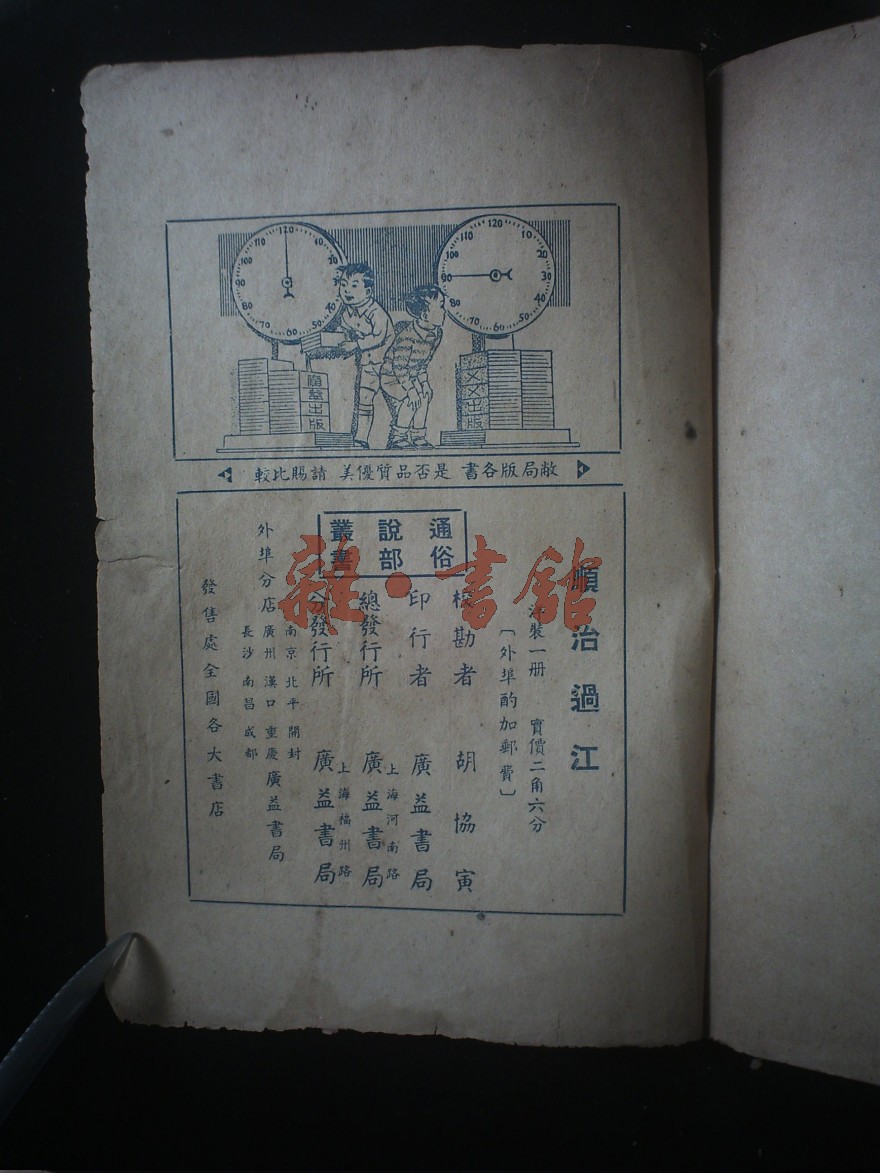 120
10
20
30
40
50
60
70
80
90
100
110
120
10
20
30
40
50
60
70
80
90
100
110
廣益出版
乂乂出版
敝局版各書 是否品質優美 請賜比較
順治過江
洋裝一册 實價二角六分
〔外埠酌加郵費〕
通俗
說部
叢書
校勘者 胡協寅
印行者 廣益書局
總發行所 上海河南路 廣益書局
分發行所 上海福州路 廣益書局
外埠分店
南京 北平 開封
廣州 漢口 重慶
長沙 南昌 成都
廣益書局
發售處全國各大書店
雜·書館